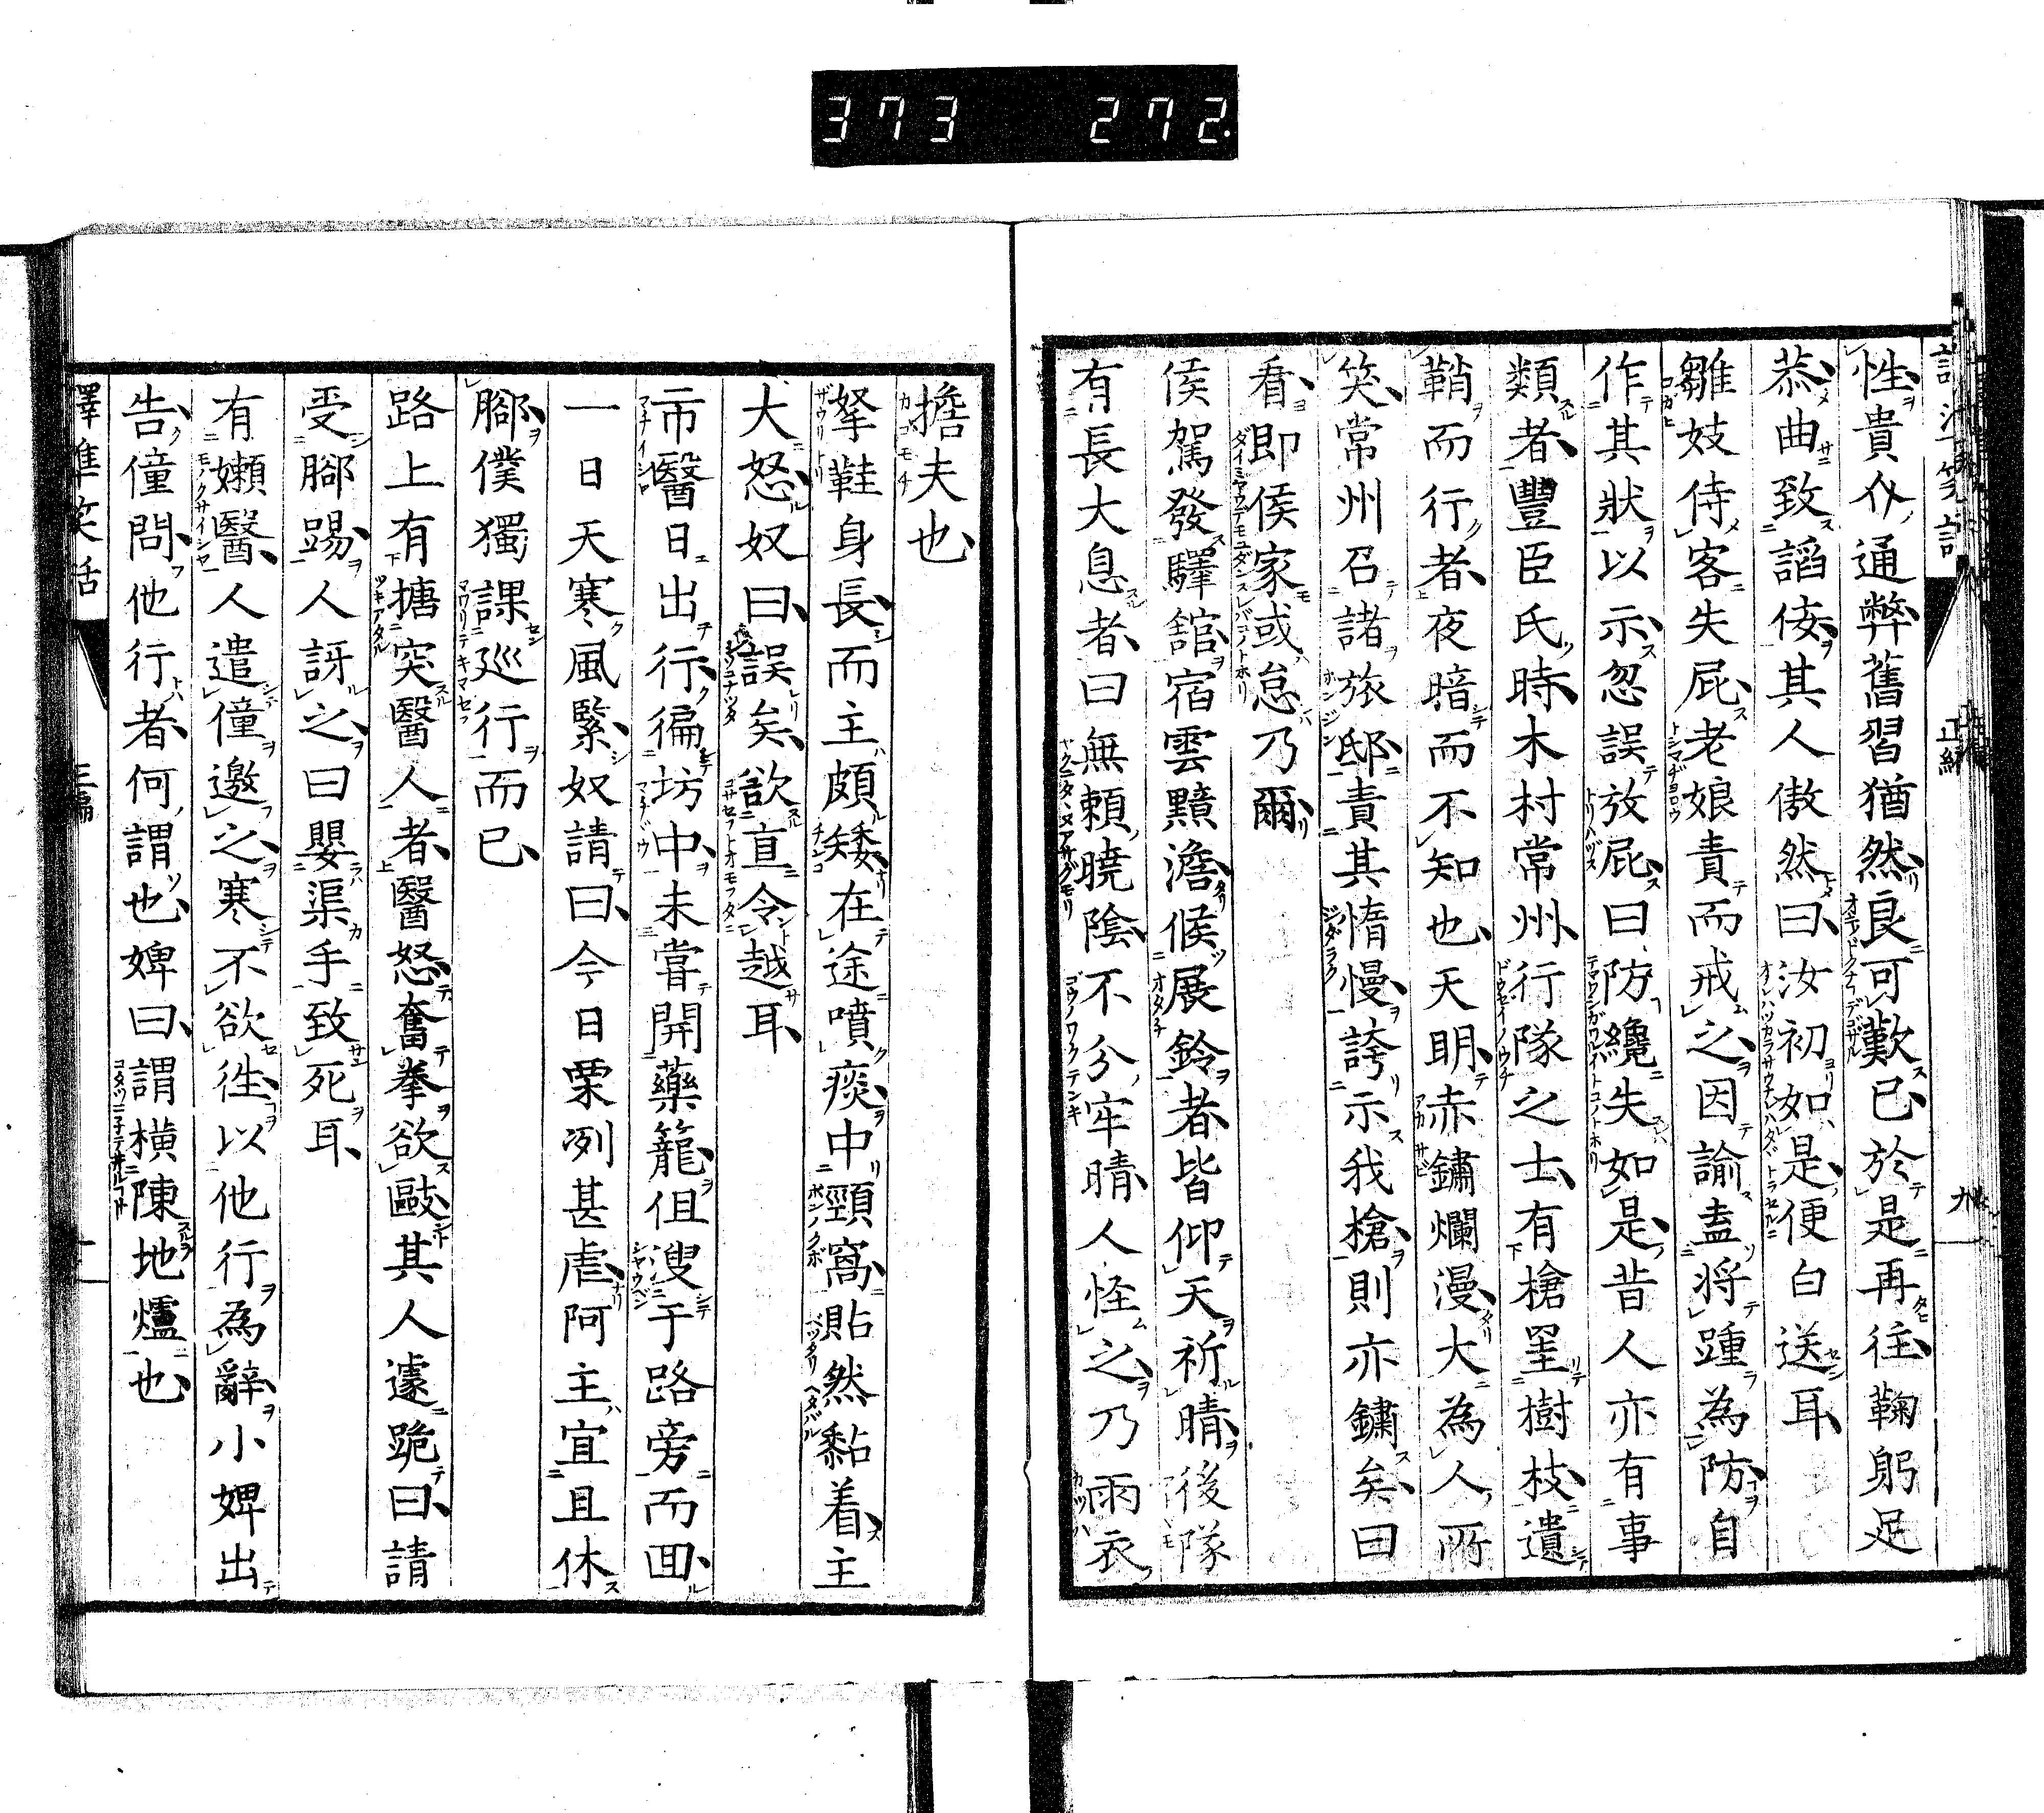 373 272.
性貴人通弊舊習猶然良可歎已於是再往鞠躬足
恭曲致謟侫其人傲然曰汝初如是便白送耳
雛妓侍客失屁老娘責而戒之因諭盍将踵為防自
作其狀以示忽誤放屁曰防纔失如是昔人亦有事
類者豐臣氏時木村常州行隊之士有槍罣樹枝遺
鞘而行者夜暗而不知也天明赤鏽爛漫大為人所
笑常州召諸旅邸責其惰慢誇示我槍則亦鏽矣曰
看即侯家或怠乃爾
侯駕發驛舘宿雲黯澹候展鈴者皆仰天祈晴後隊
有長大息者曰無賴曉陰不分牢晴人怪之乃雨衣
擔夫也
拏鞋身長而主頗矮在途噴痰中頸窩貼然黏着主
大怒奴曰誤矣欲直令越耳
市醫日出行徧坊中未嘗開藥籠但溲于路旁而囬
一日天寒風緊奴請曰今日栗冽甚虐阿主宜且休
腳僕獨課巡行而已
路上有搪突醫人者醫怒奮拳欲毆其人遽跪曰請
受腳踢人訝之曰嬰渠手致死耳
有嬾醫人遣僮邀之寒不欲徃以他行為辭小婢出
告僮問他行者何謂也婢曰謂橫陳地爐也